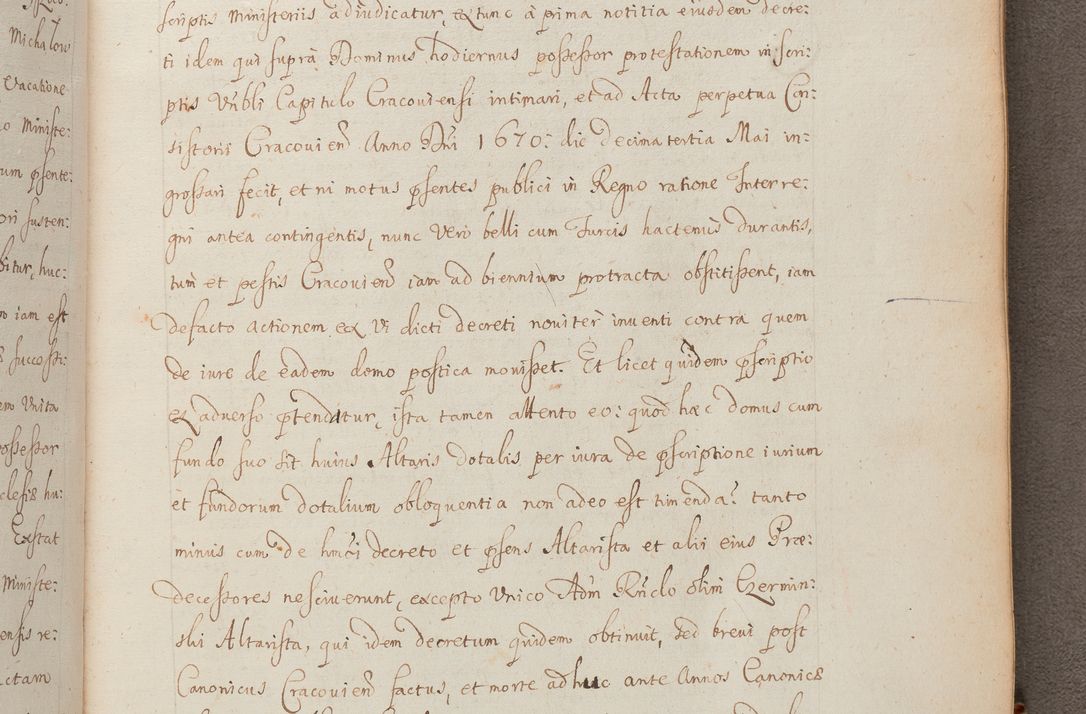 Michalow
Vacatione
o Ministe:
um psente:
ori susten:
bitur, huc:
o iam est
succossi:
em Unita
possessor
clesiæ hu:
Exstat
Ministe:
ensis re:
ctam
scriptis Ministeriis adiudicatur, ex tunc à prima notitia eiusdem decre:
ti idem qui suprà Dominus hodiernus possessor protestationem in scri:
ptis Vnbli Capitulo Cracoviensi intimari, et ad Acta perpetua Con:
sistorii Cracovien Anno Dni 1670: die decima tertia Mai in:
grossari fecit, et ni motus psentes publici in Regno ratione Interre:
gni antea contingentis, nunc Verò belli cum Turcis hactenùs durantis,
tum et pestis Cracovien iam ad biennium protracta obstitissent, iam
defacto actionem ex Vi dicti decreti noviter inventi contra quem
de iure de eadem domo postica movisset. Et licet quidem pscriptio
ex adverso ptendatur, ista tamen attento eo: quod hæc domus cum
fundo suo sit huius Altaris dotalis per iura de pscriptione iurium
et fundorum dotalium obloquentia non adeo est timenda? tanto
minùs cum de hmoi decreto et psens Altarista et alii eius Præ:
decessores nesciverunt, excepto Unico Adm Rndo olim Czermin:
ski Altarista, qui idem decretum quidem obtinuit, sed brevi post
Canonicus Cracovien factus, et morte adhuc ante Annos Canonicæ